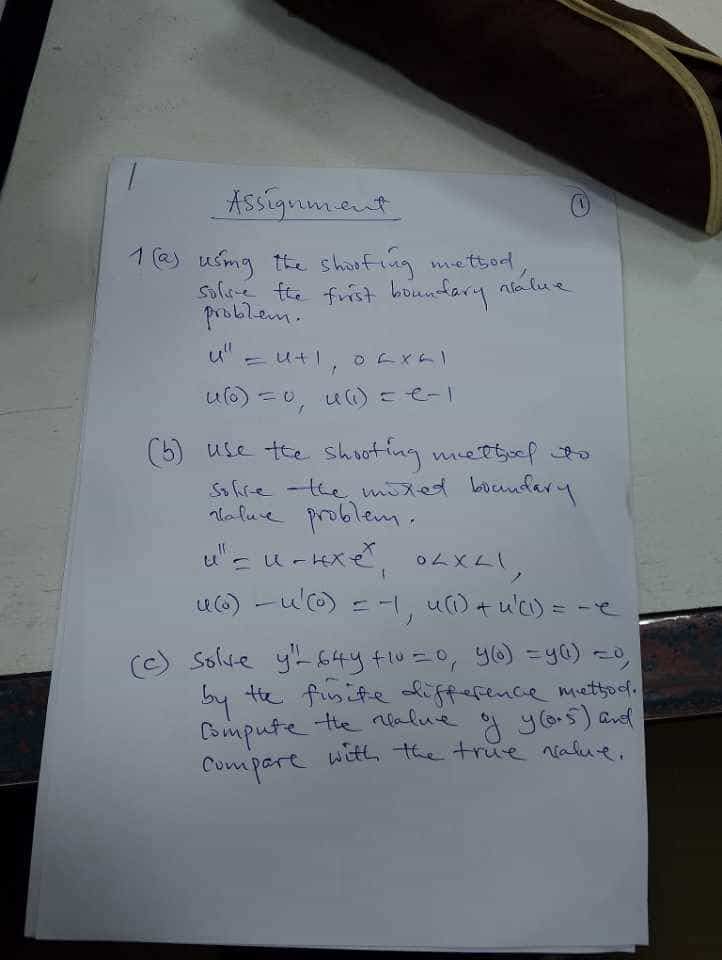 1
Assignment
1
1(a) using the shooting method,
solve the first boundary value
problem.
u'' = u+1, 0 < x < 1
u(0) = 0, u(1) = e-1
(b) use the shooting method to
solve the mixed boundary
value problem.
u'' = u - 4xe^x, 0 < x < 1,
u(0) - u'(0) = -1, u(1) + u'(1) = -e
(c) Solve y'' - 64y + 10 = 0, y(0) = y(1) = 0,
by the finite difference method.
Compute the value of y(0.5) and
compare with the true value.